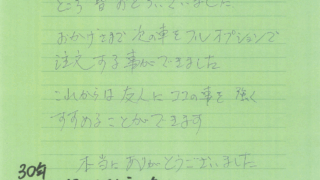 おかげさまで 次の車をフルオプションで
注文する事ができました
これからは友人にココの事を 強く
すすめることができます
本当にありがとうございました
30台